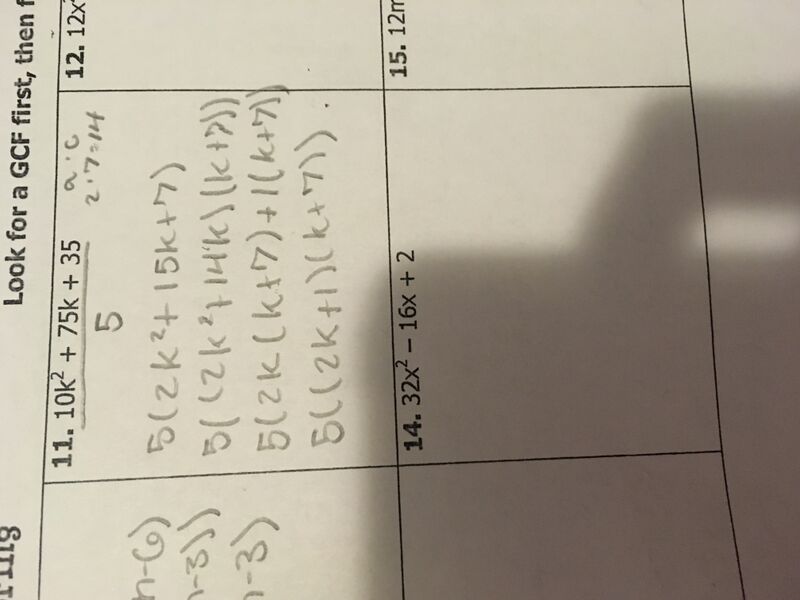 Look for a GCF first, then f
11. 10k² + 75k + 35
5
a · c
2 · 7 = 14
5(2k² + 15k + 7)
5((2k² + 14k)(k + 7))
5(2k(k + 7) + 1(k + 7))
5((2k + 1)(k + 7)).
12. 12x
n-6)
n-3))
n-3)
14. 32x² – 16x + 2
15. 12m